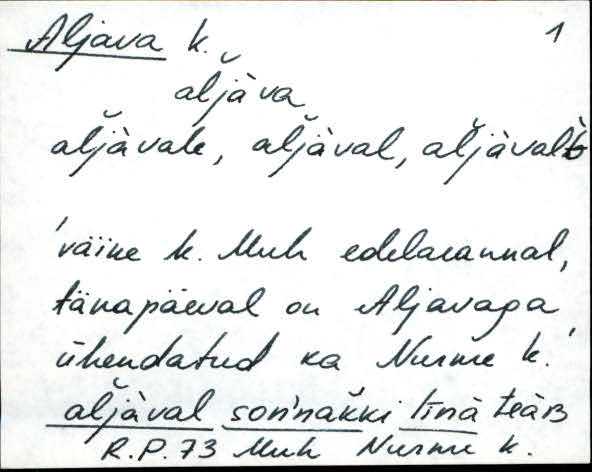 Aljava k. 1
al̆jàva
al̆jàvale, al̆jàval, al̆jàval̀t
'väike k. Muh edelarannal,
tänapäeval on Aljavaga
ühendatud ka Nurme k.'
al̆jàval sońnakki
R.P.73 Muh Nurme k.